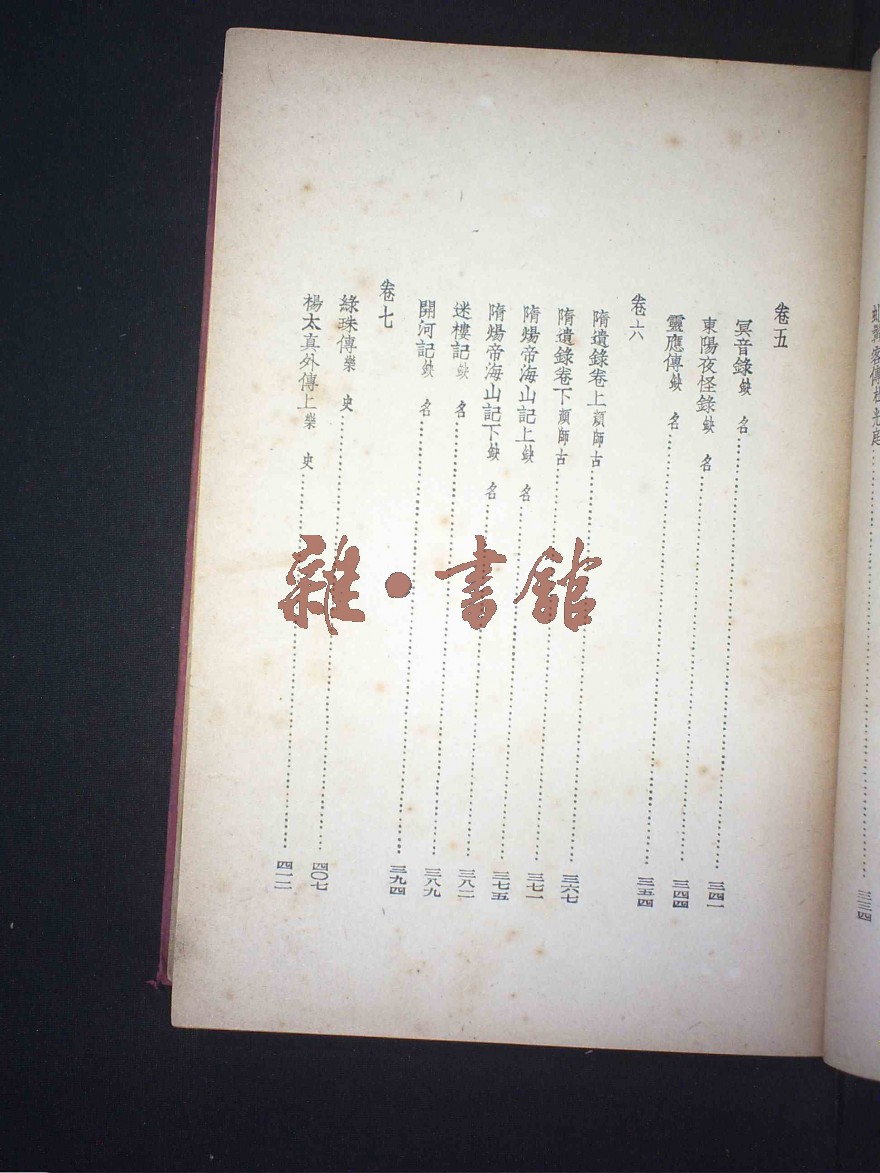 客傳杜光庭……三三四
卷五
冥音錄缺 名……三四一
東陽夜怪錄缺 名……三四四
靈應傳缺 名……三五四
卷六
隋遺錄卷上顏師古……三六七
隋遺錄卷下顏師古……三七一
隋煬帝海山記上缺 名……三七五
隋煬帝海山記下缺 名……三八二
迷樓記缺 名……三八九
開河記缺 名……三九四
卷七
綠珠傳樂 史……四〇七
楊太真外傳上樂 史……四一二
雜·書館